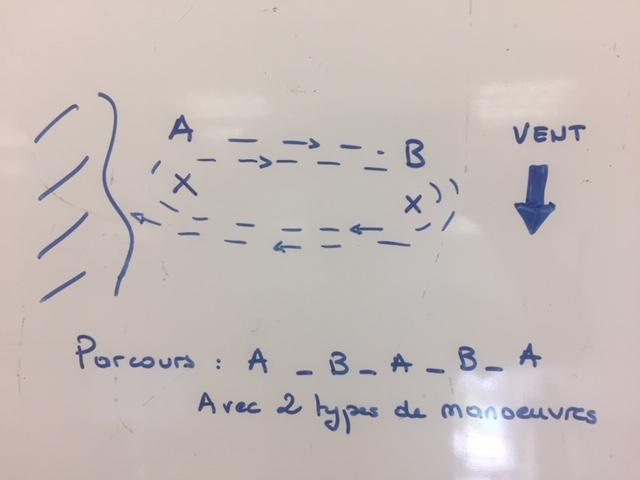 A
B
VENT
X
X
Parcours : A - B - A - B - A
Avec 2 types de manoeuvres